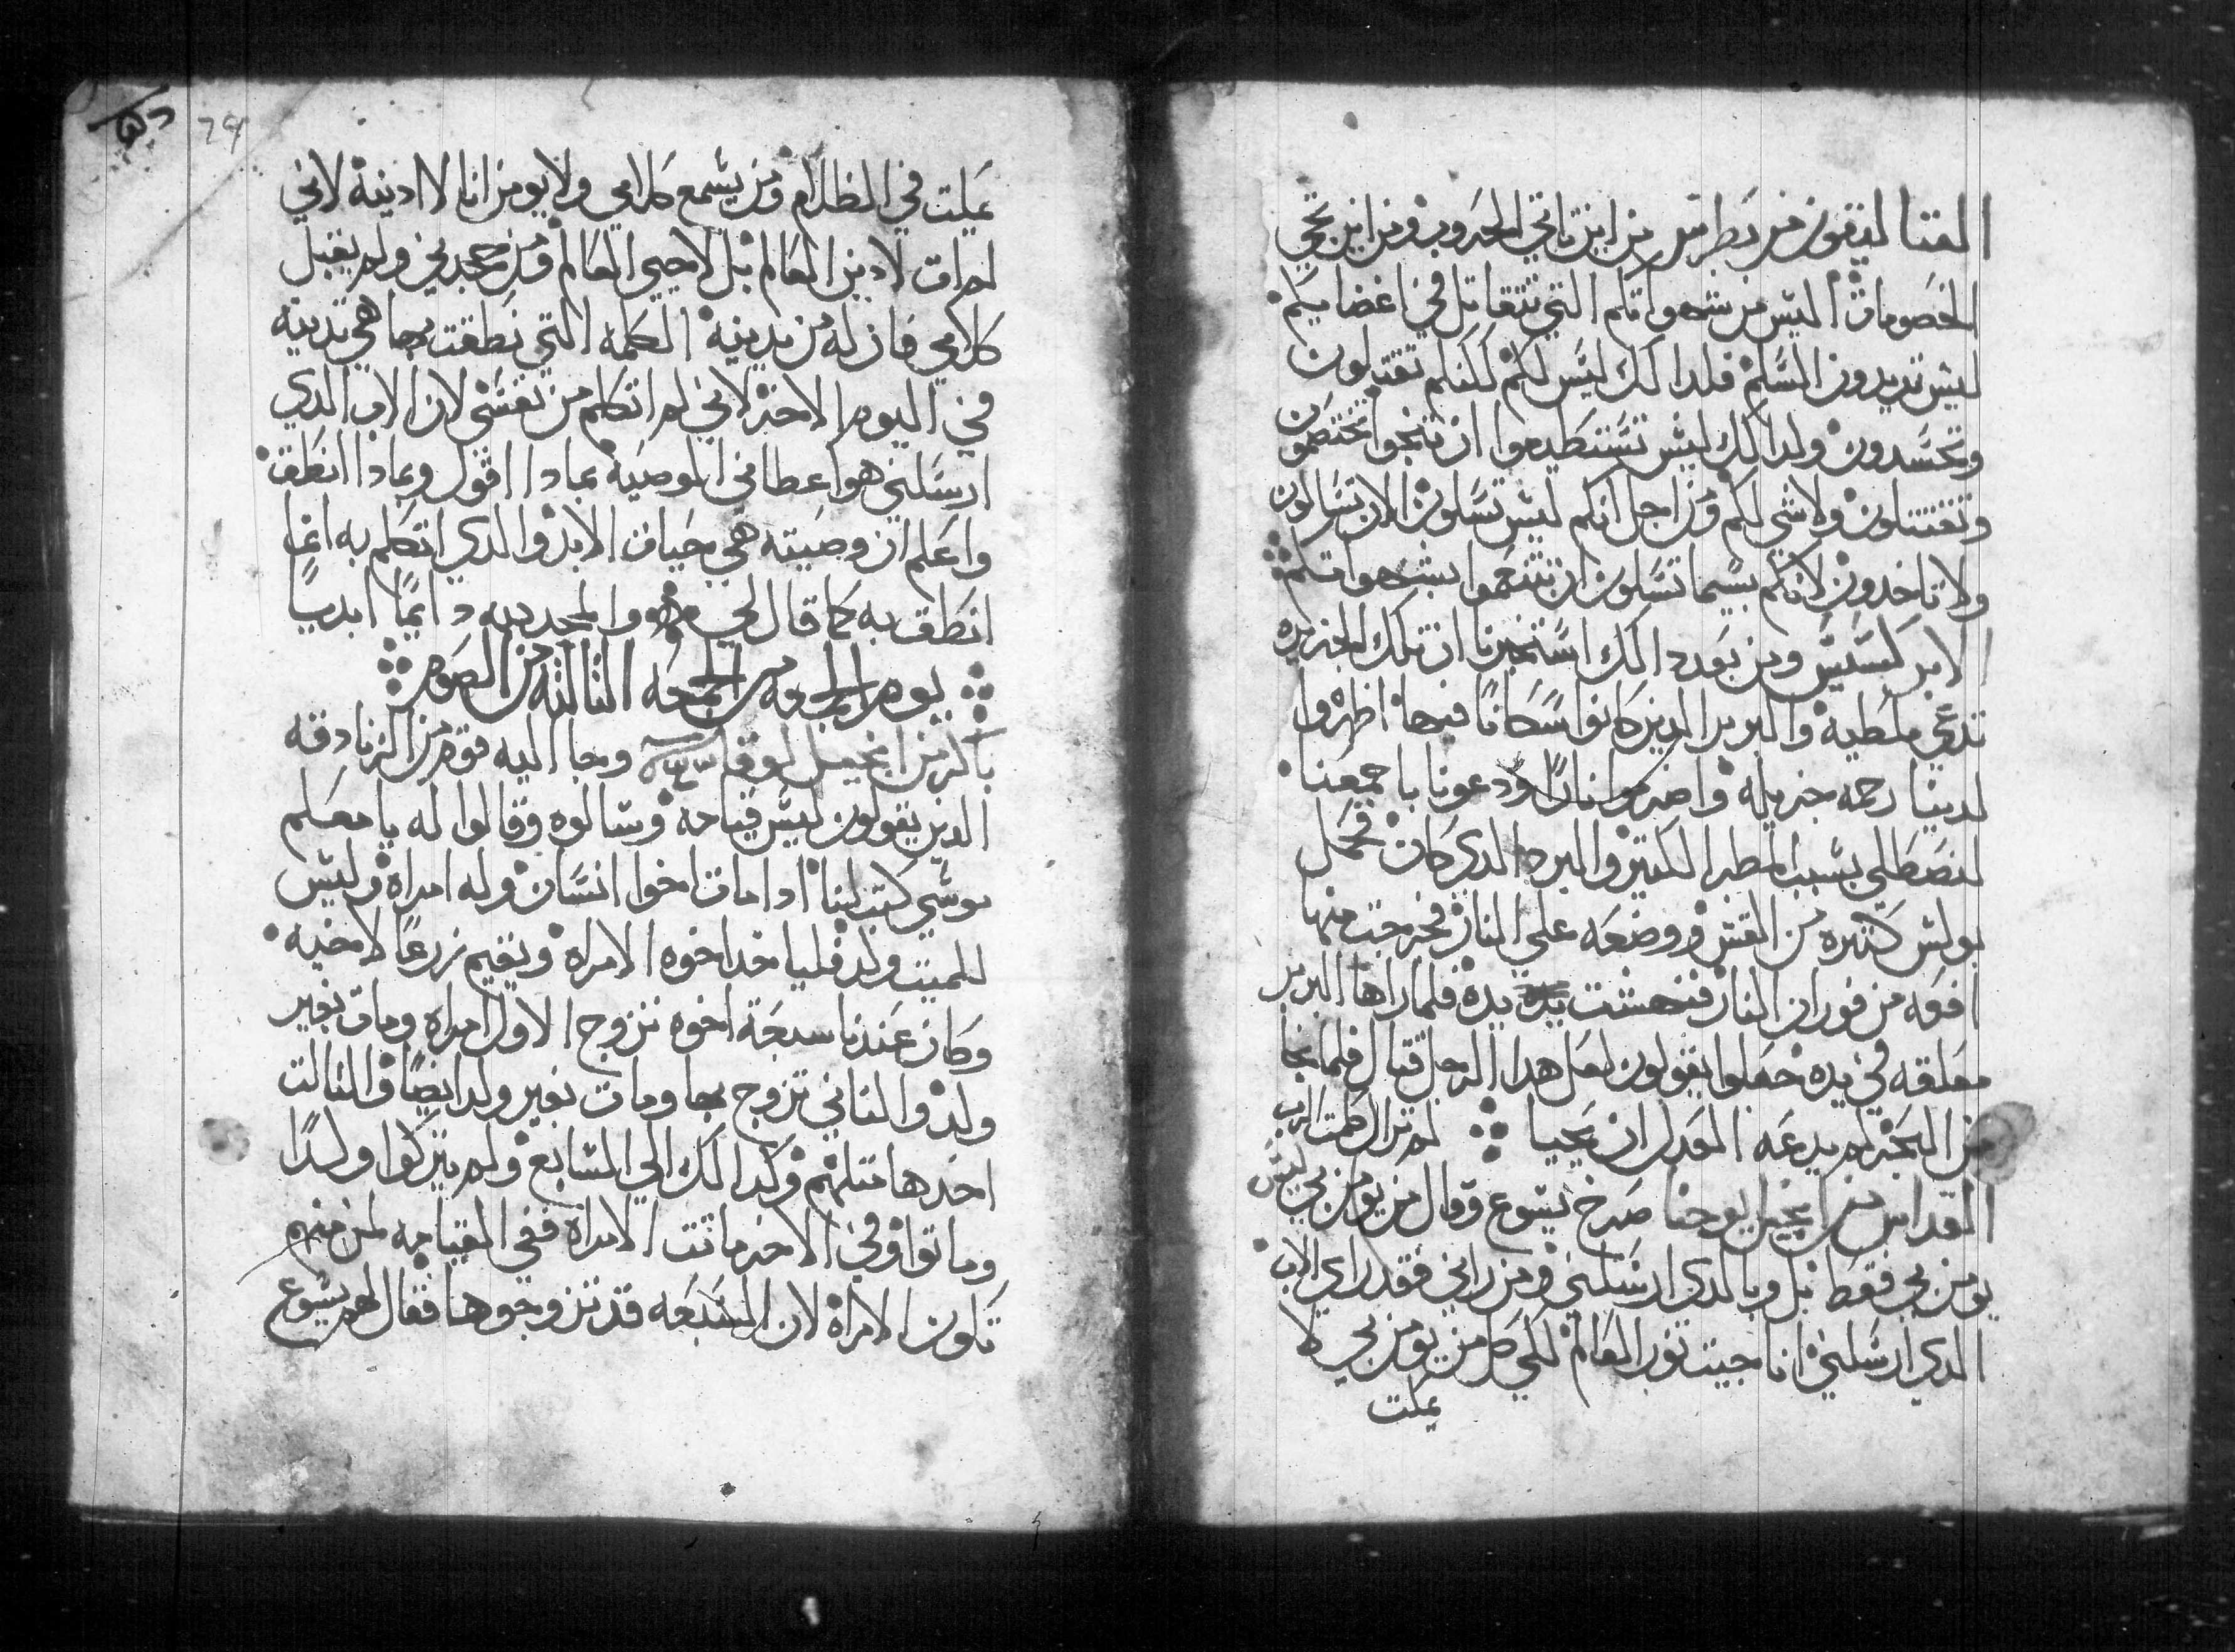 القتاليقون من بطرس من اين تاتي الحروب ومن اين تجي
الخصومات اليس من شهواتكم التي تتقاتل في اعضايكم
ليس تريدون السلم فلدالك ليس لكم لكنكم تقتلون
وتحسدون ولدالك ليس تستطيعوا ان تنجوا تختصمون
وتقتتلون ولا شي لكم ومن اجل انكم ليس تسلون الان تسالون
ولا تاخدون لانكم بيسما تسلون ان تتنعموا بشهواتكم
الابركسيس ومن بعد دالك استخبرنا ان تلك الجزيره
تدعي ملطية والبربر الدين كانوا سكانا فيها اظهروا
لدينا رحمه جزيله واضرموا نارا ودعونا باجمعنا
لنصطلي بسبب المطر الكتير والبرد الدي كان فحمل
بولس كتيره من القش ووضعه علي النار فخرجت منها
افعه من فوران النار فنهشت يده فلما راها البربر
معلقه في يده جعلوا يقولون لعل هدا الرجل قتال فلما نجا
من البحر لم يدعه العدل ان يحيا لم تزال كلمت الرب
القداس من انجيل يوحنا صرخ يسوع وقال من يومن بي ليس
يومن بي فقط بل وبالدي ارسلني ومن راني فقد راي الاب
الدي ارسلني انا جيت نور العالم لكي كل من يومن بي لا
يمكت
يمكت في الظلام ومن يسمع كلامي ولا يومن انا لا ادينه لاني
لم ات لادين العالم بل لاحيي العالم ومن جحدني ولم يقبل
كلامي فان له من يدينه الكلمه التي نطقت بها هي تدينه
في اليوم الاخر لاني لم اتكلم من نفسي لان الاب الدي
ارسلني هو اعطاني الوصيه بمادا اقول وبمادا انطق
واعلم ان وصيته هي حيات الابد والدي اتكلم به انما
انطق به كما قال لي والمجد لله دايما ابديا
يوم الجمعه من الجمعه التالته من الصوم
باكر من انجيل لوقا وجا اليه قوم من الزنادقه
الدين يقولون ليس قيامه وسالوه وقالوا له يا معلم
موسي كتب لنا ادا مات اخوا انسان وله امراه وليس
للميت ولد فلياخد اخوه الامراه ويقيم زرعا لاخيه
وكان عندنا سبعة اخوه تزوج الاول امراه ومات بغير
ولد والتاني تزوج بها ومات بغير ولد ايضا والتالت
اخدها متلهم وكدالك الي السابع ولم يتركوا ولدا
وماتوا وفي الاخر ماتت الامراه ففي القيامه لمن منهم
تكون الامراه لان السبعه قد تزوجوها فقال لهم يسوع